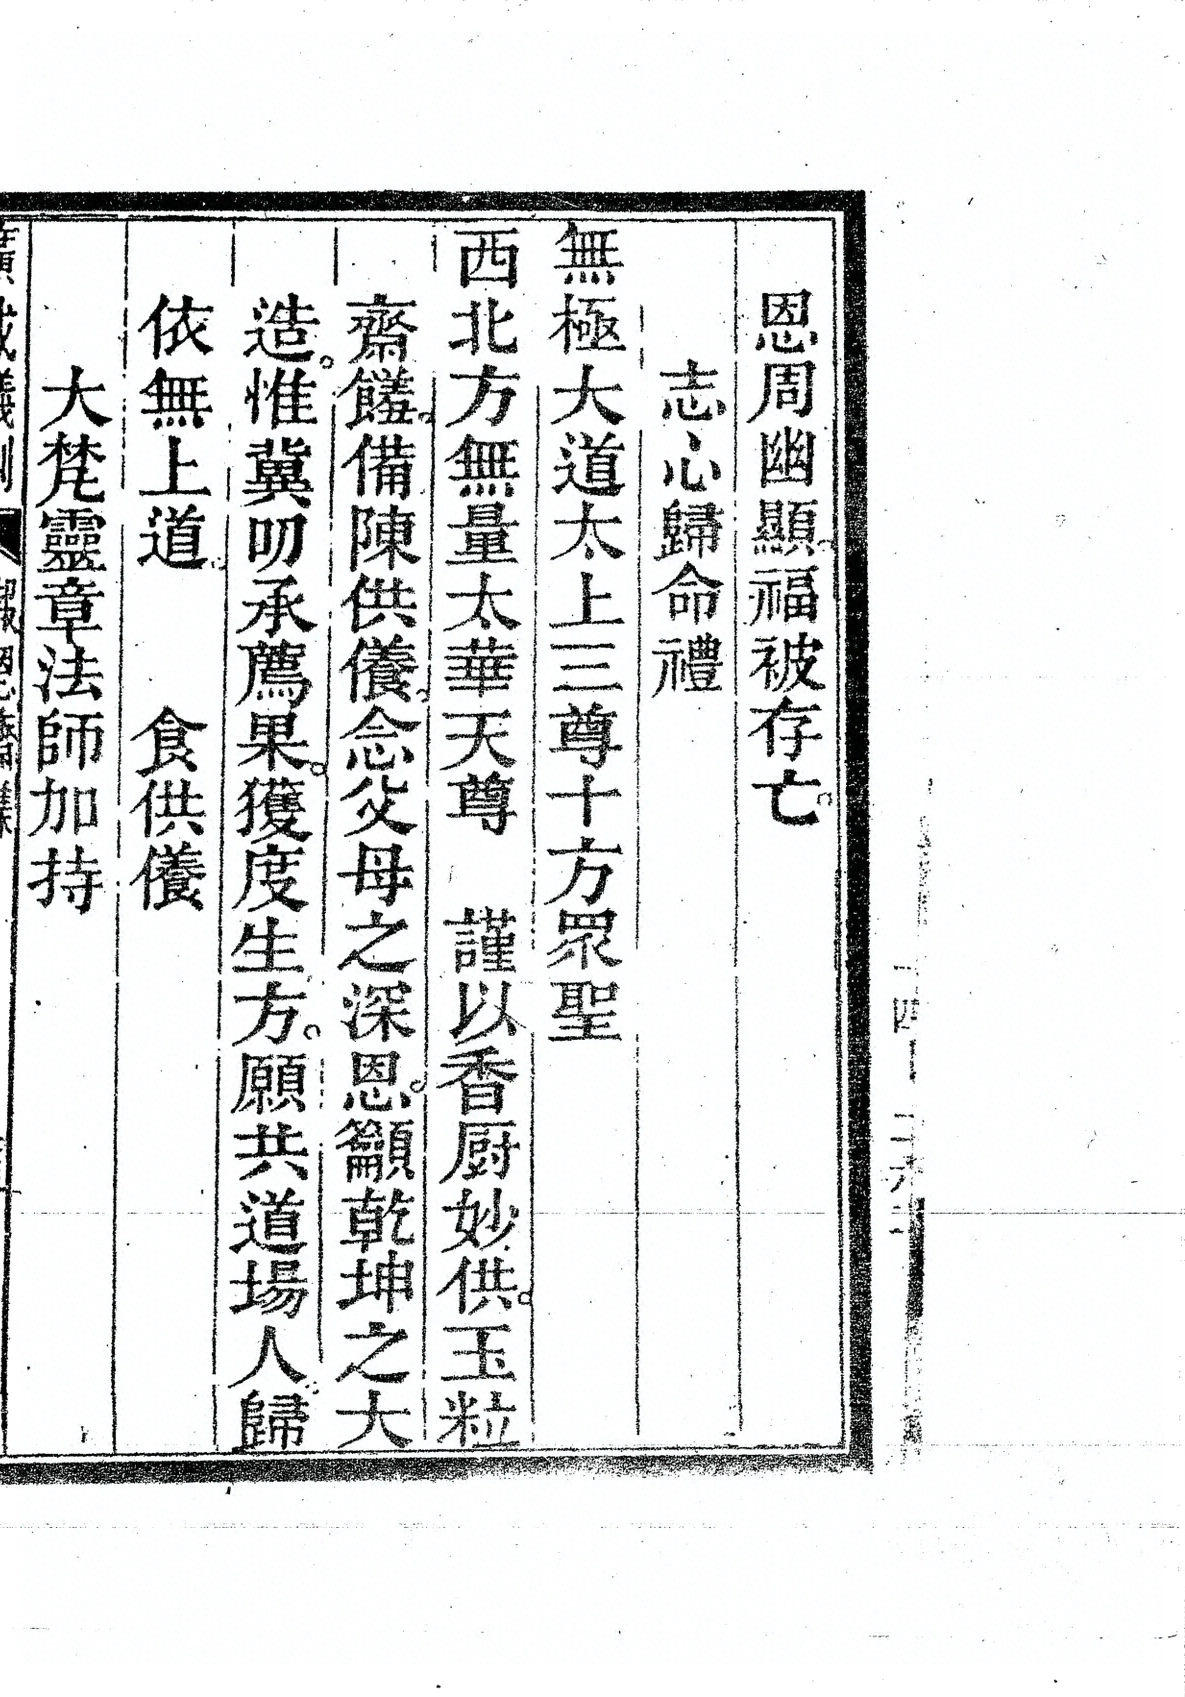 恩周幽顯。福被存亡。
志心歸命禮
無極大道太上三尊十方眾聖
西北方無量太華天尊　謹以香厨妙供。玉粒
齋饈。備陳供養。念父母之深恩。籲乾坤之大
造。惟冀叨承薦果。獲度生方。願共道場人。歸
依無上道。　食供養
大梵靈章法師加持
廣成儀制
十四－二六二